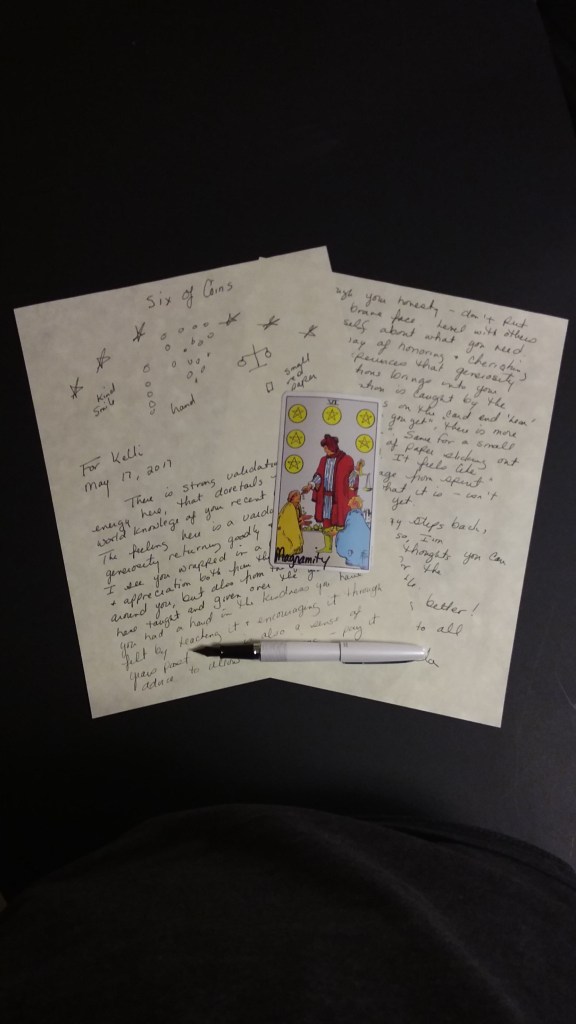 Six of Coins
kind
smile
hand
small
red
paper
For Kelli
May 17, 2017
There is strong validatio
energy here, that dovetails
world knowlege of your recent
The feeling here is a valida
generosity returning goodly
I see you wrapped in a
+ appreciation both from th
around you, but also from the
have taught and given over the
you had a hand in the kindness you have
felt by teaching it + encouraging it through
years past also a sense of
advice to allow - pay it
VI
Magnamity
your honesty - don't put
brave face. Level with others
about what you need
way of honoring + cherishing
that generosity
brings unto you
is caught by the
on the card and "hear"
you get". There is more
Same for a small
of paper sticking out
It feels like
from spirit
that it is - won't
yet.
steps back,
so, I'm
thoughts you can
the
better!
to all